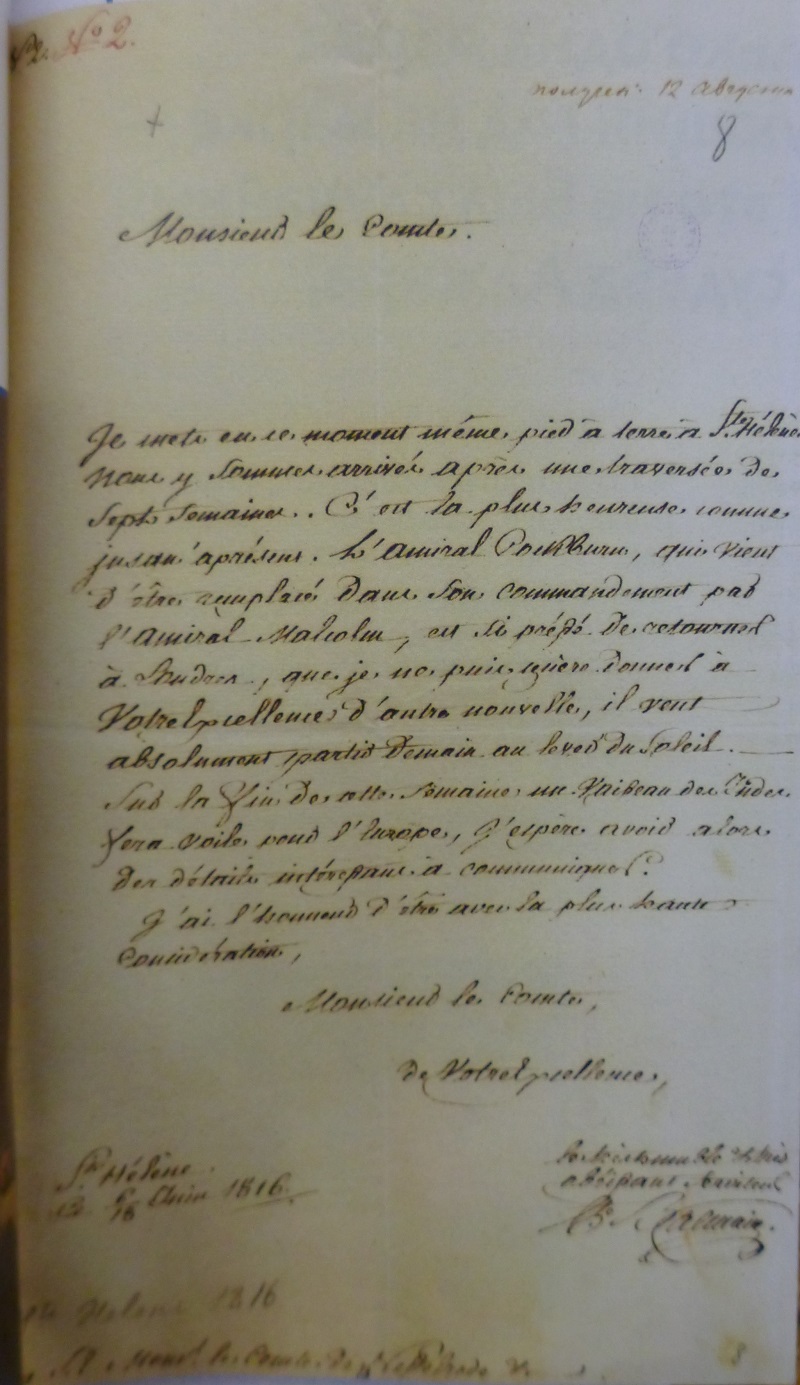 № 2.
получен: 12 августа
8
Monsieur le Comte.
Je mets en ce moment même pied à terre à Ste Hélène
nous y sommes arrivés après une traversée de
sept semaines.. C'est la plus heureuse connue
jusqu'àprésent. L'amiral Cockburn, qui vient
d'être remplacé dans son commandement par
l'amiral Malcolm, est si préssé de retourner
à Londres, que je ne puis guère donner à
Votre Excellence d'autre nouvelle, il veut
absolument partir demain au lever du Soleil.
Sur la fin de cette semaine un Vaisseau des Indes
fera voile pour l'Europe, j'espère avoir alors
des détails intéressans à communiquer.
J'ai l'honneur d'être avec la plus haute
Considération,
Monsieur le Comte,
de Votre Excellence,
Ste Hélène
le 6/18 Juin 1816.
le très humble & très
obéissant Serviteur
Ste Helene 1816
A Monsr. le Comte de
8